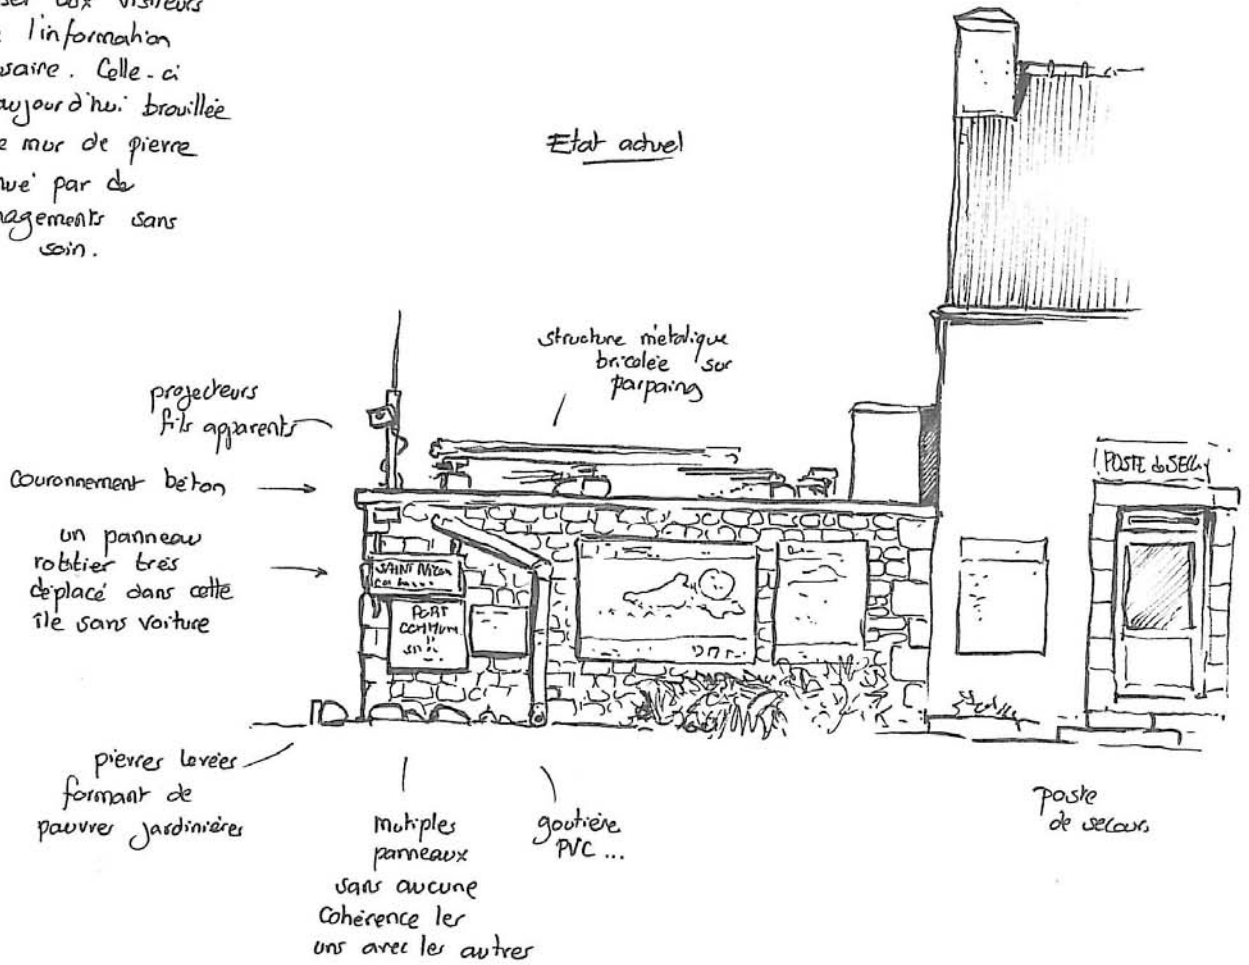 aux visiteurs
l'information
saire. Celle-ci
aujourd'hui brouillée
mur de pierre
par de
nagements sans
soin.
Etat actuel
structure métalique
bricolée sur
parpaing
projecteurs
fils apparents
couronnement béton
un panneau
routier très
déplacé dans cette
île sans voiture
POSTE de SEC
SAINT
PORT
COMMUN
pierres levées
formant de
pauvres jardinières
mutiples
panneaux
sans aucune
cohérence les
uns avec les autres
goutière
PVC ...
poste
de secours